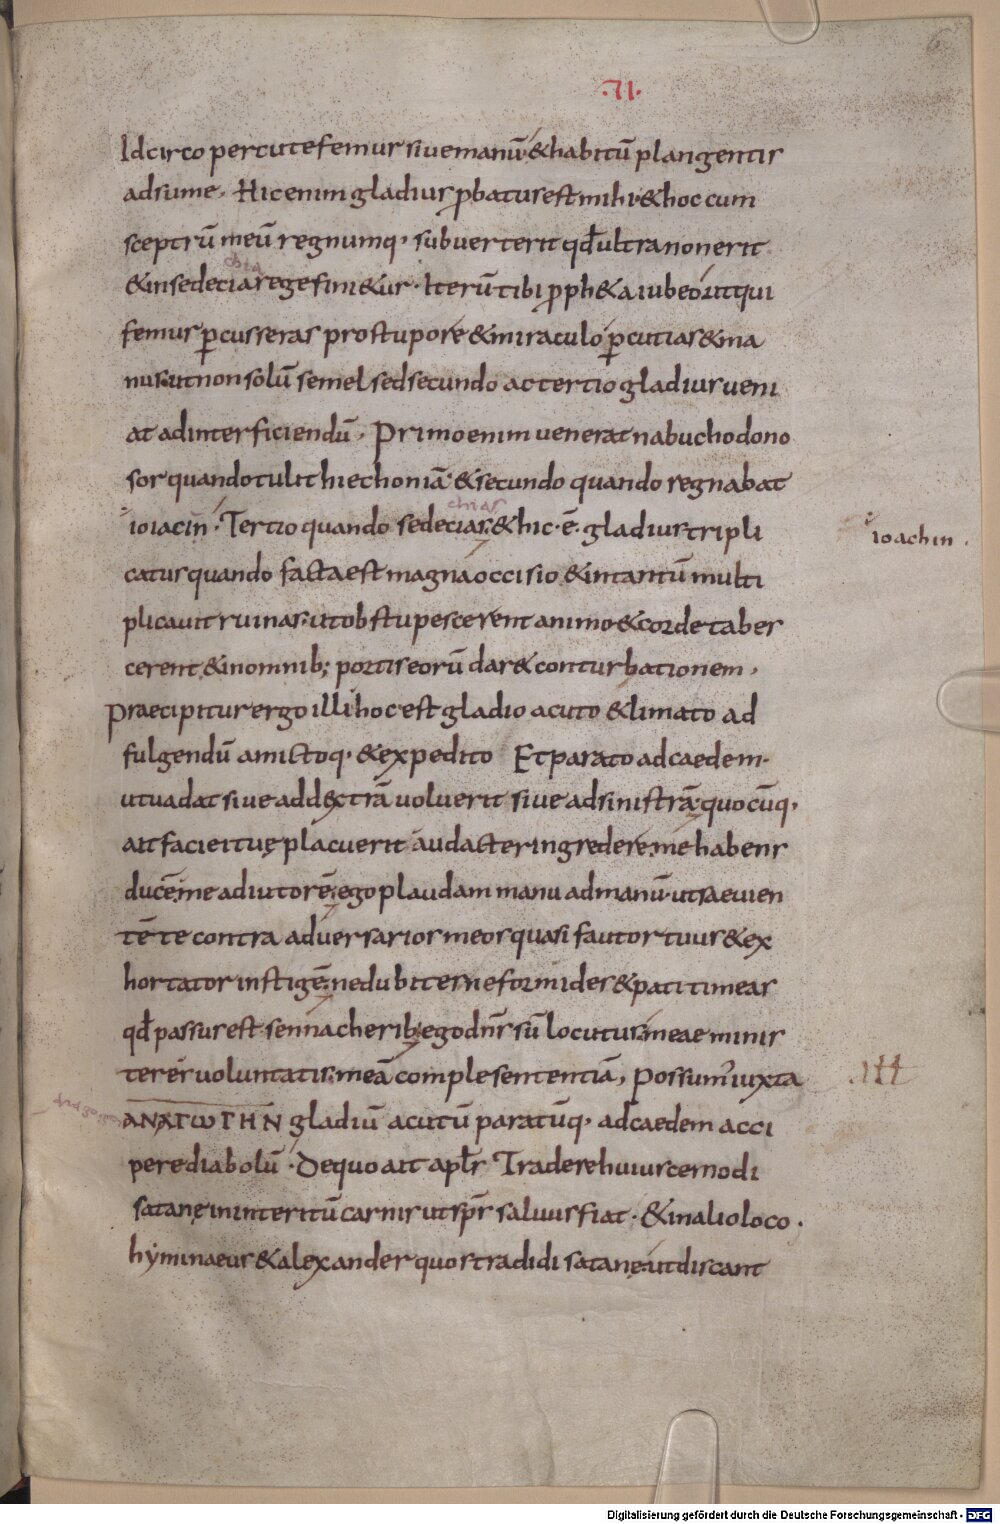 6
·VI·
Idcirco percute femur siue manū· & habitū plangentis
adsume· Hic enim gladius ꝓbatus est mihi· & hoc cum
sceptrū meū regnumq· subuerterit qđ ultra non erit
chia
& in sedecia rege fini&ur· Iterū tibi ꝓph&a iubeo· ut qui
femur ꝑcusseras pro stupore & miraculo ꝑcutias & ma
nus· ut non solū semel sed secundo ac tertio gladius ueni
at ad interficiendū· Primo enim uenerat nabuchodono
sor quando tulit hiechoniā· & secundo quando regnabat
chias
ioiacin· Tertio quando sedecias· & hic·ē· gladius tripli
ioachin·
catus quando facta est magna occisio & intantū multi
plicauit ruinas· ut obstupescerent animo & corde tabes
cerent· & in omnib; portis eorū dar& conturbationem·
Praecipitur ergo illi hoc est gladio acuto & limato ad
fulgendū amictoq· & expedito Et parato ad caedem·
ut uadat siue ad dextrā uoluerit siue ad sinistrā· quocūq·
ait faciei tuę placuerit audacter ingredere· me habens
ducē· me adiutorē· ego plaudam manu ad manū· ut saeuien
tē te contra aduersarios meos quasi fautor tuus & ex
hortator instigē· ne dubites ne formides & pati timeas
qđ passus est sennacherib· ego dn̄s sū locutus· meae minis
ter es uoluntatis· meā comple sententiā, Possum' iuxta
ΑΝΑΓωΓΗΝ gladiū acutū paratūq· ad caedem acci
pere diabolū· De quo ait apl̄s Tradere huiuscemodi
satanę in interitū carnis ut sp̄s saluus fiat· & in alio loco·
hẏminaeus & alexander quos tradidi satanę· ut discant
Digitalisierung gefördert durch die Deutsche Forschungsgemeinschaft - DFG